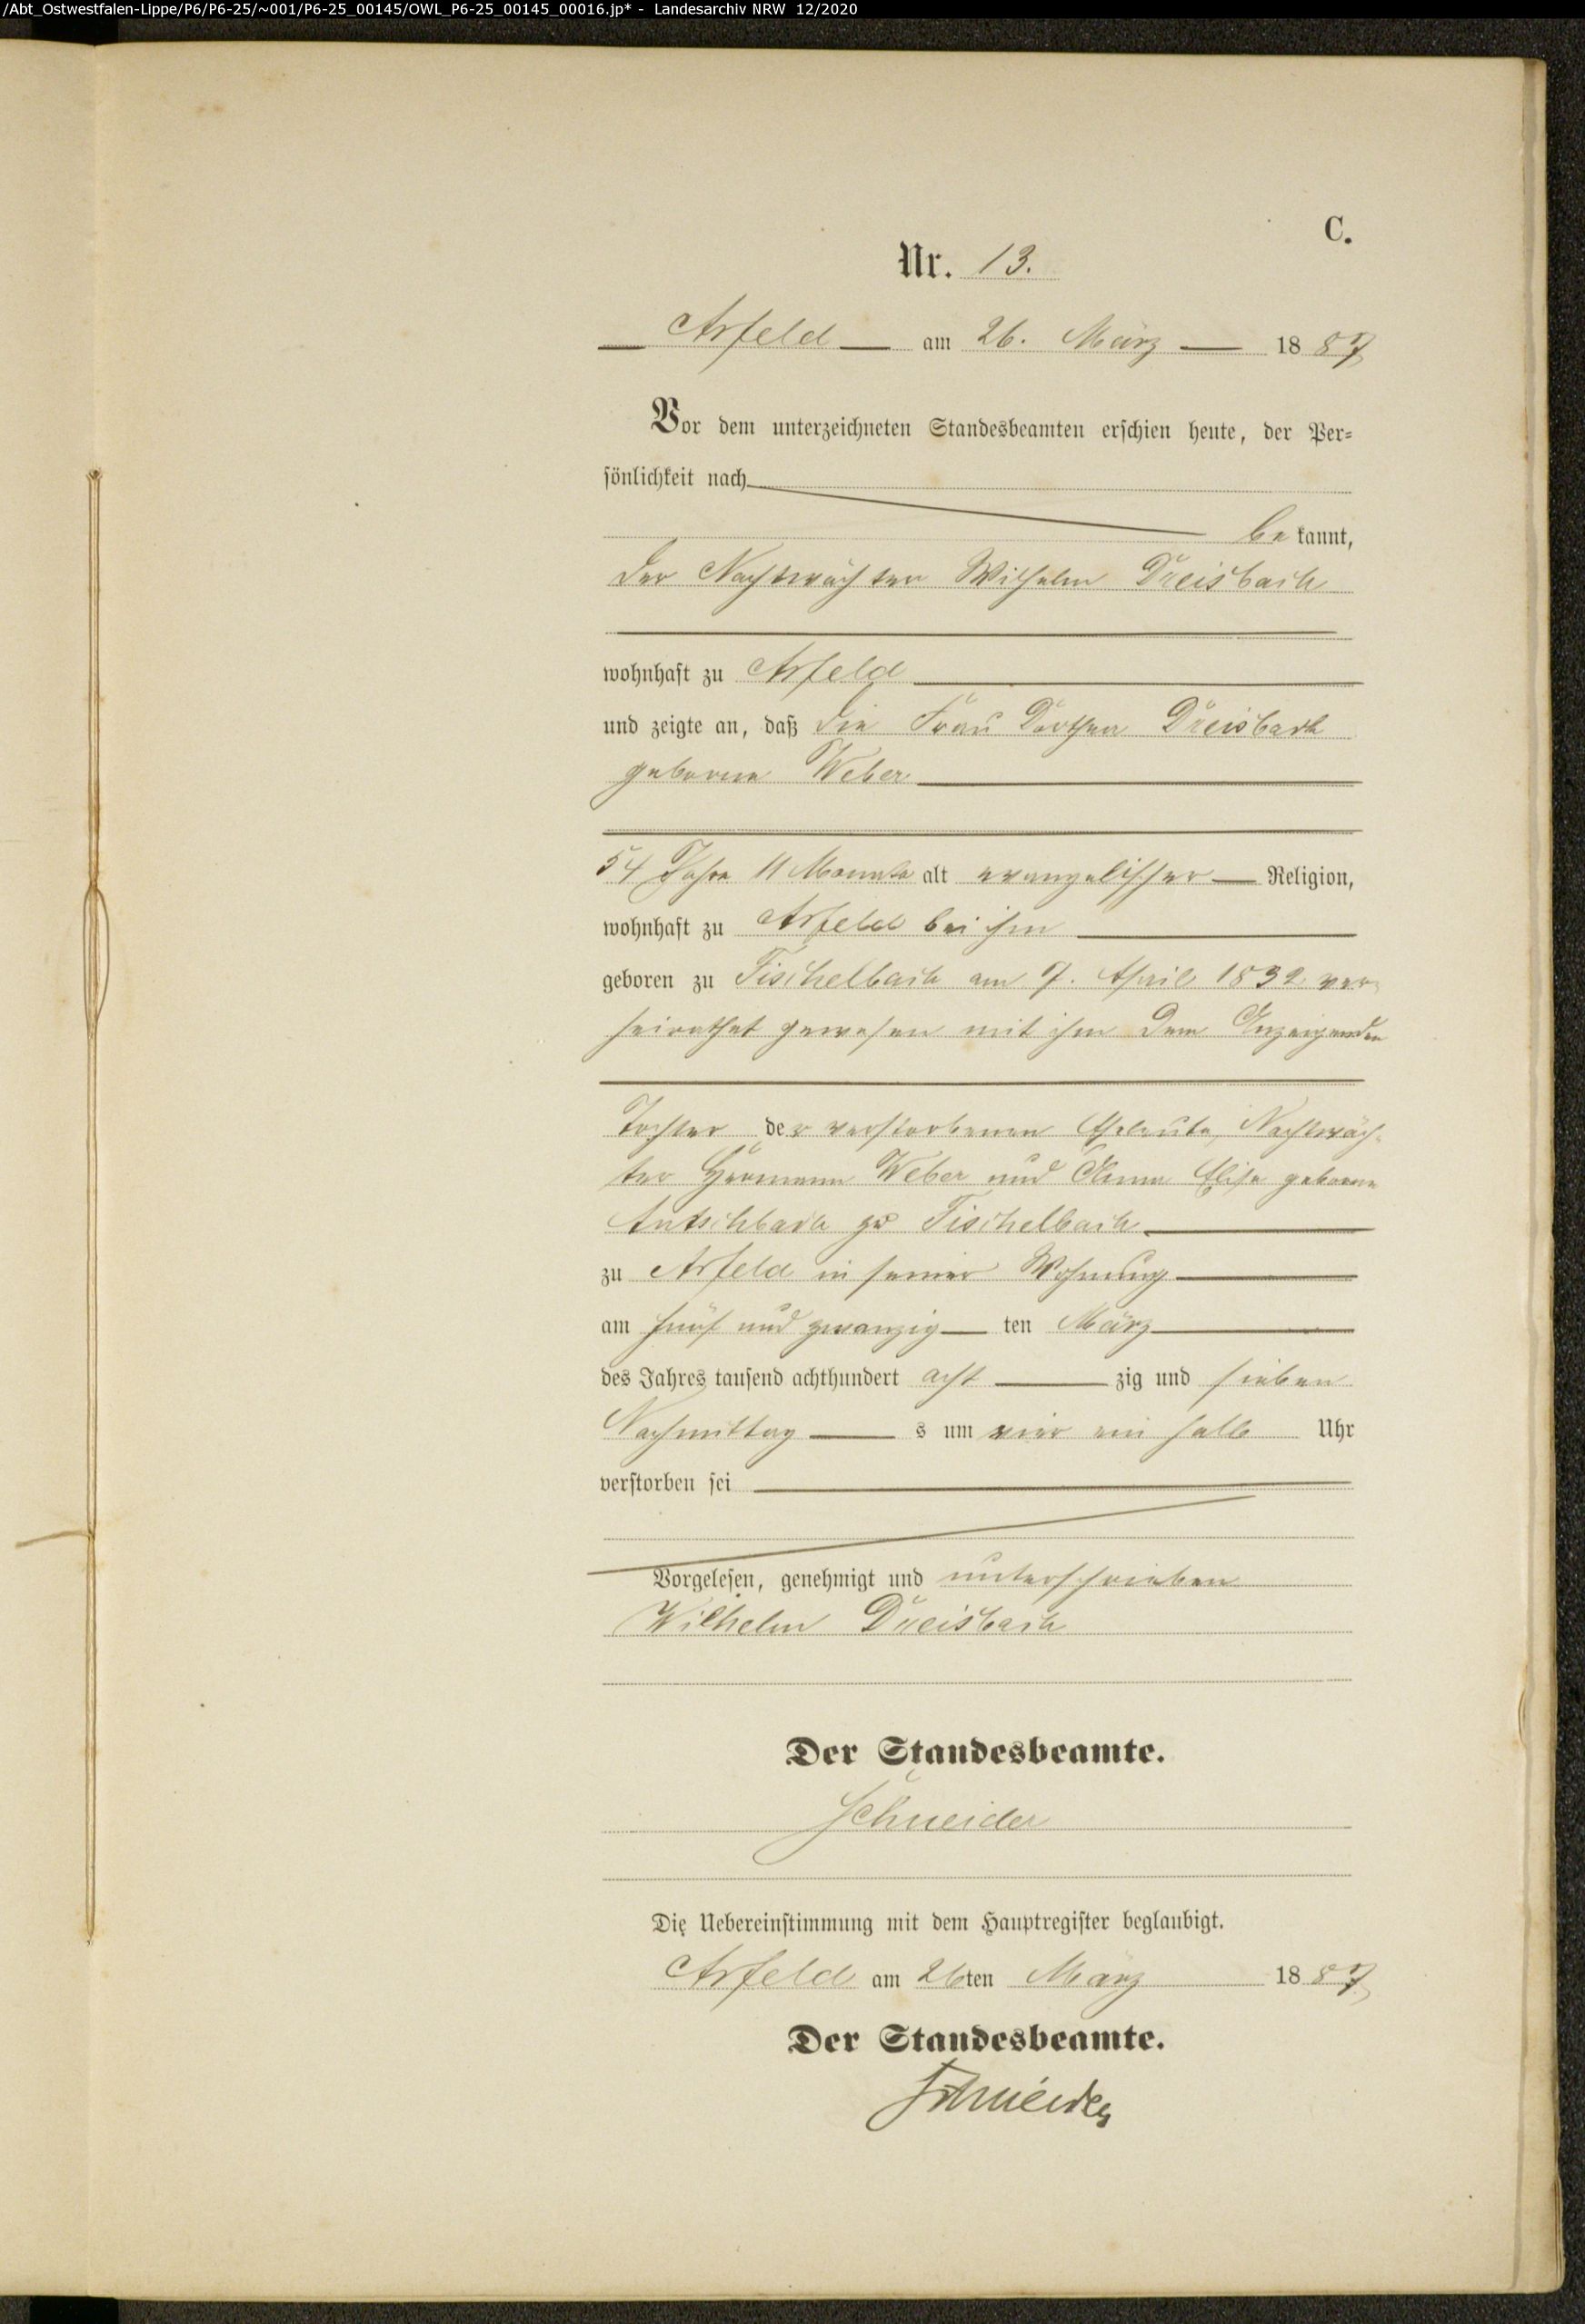 /Abt_Ostwestfalen-Lippe/P6/P6-25/~001/P6-25_00145/OWL_P6-25_00145_00016.jp* - Landesarchiv NRW 12/2020
C.
Nr. 13.
Arfeld am 26. März 1887
Vor dem unterzeichneten Standesbeamten erschien heute, der Per-
sönlichkeit nach
bekannt,
der Nachtwächter Wilhelm Dreisbach
wohnhaft zu Arfeld
und zeigte an, daß die Frau Dorthea Dreisbach
geborne Weber
54 Jahre 11 Monate alt evangelischer Religion,
wohnhaft zu Arfeld bei ihm
geboren zu Fischelbach am 7. April 1832 ver-
heirathet gewesen mit ihm dem Anzeigenden
Tochter der verstorbenen Eheleute, Nachtwäch-
ter Hermann Weber und Anna Elise geborne
zu Fischelbach
zu Arfeld in seiner Wohnung
am fünf und zwanzigten März
des Jahres tausend achthundert achtzig und sieben
Nachmittags um vier ein halb Uhr
verstorben sei
Vorgelesen, genehmigt und unterschrieben
Wilhelm Dreisbach
Der Standesbeamte.
Schneider
Die Uebereinstimmung mit dem Hauptregister beglaubigt.
Arfeld am 26ten März 1887
Der Standesbeamte.
Schneider